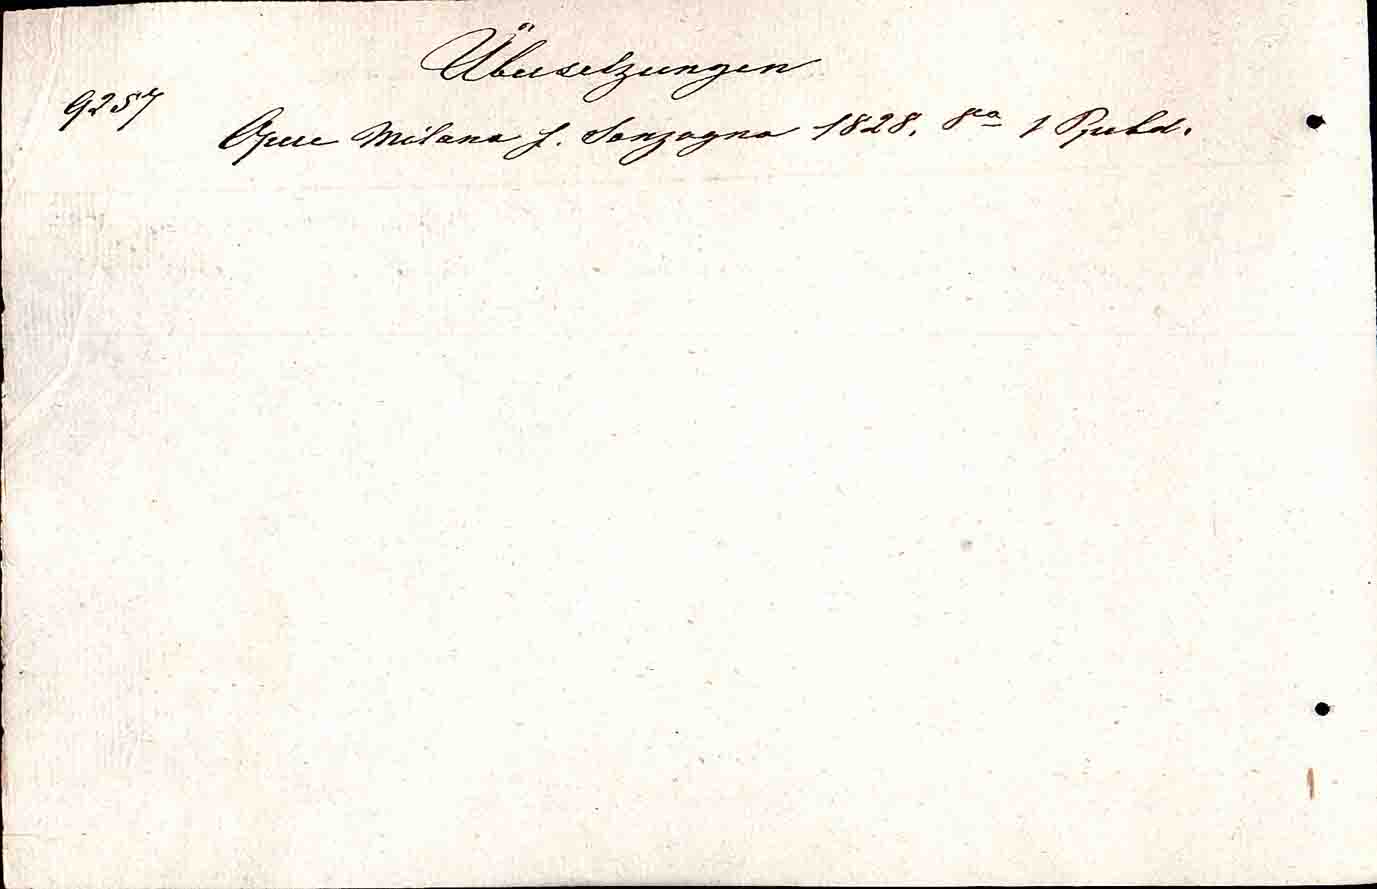 Übersetzungen
9257
Opere Milano f. Sonzogno 1828. 8vo 1 Ppebd.